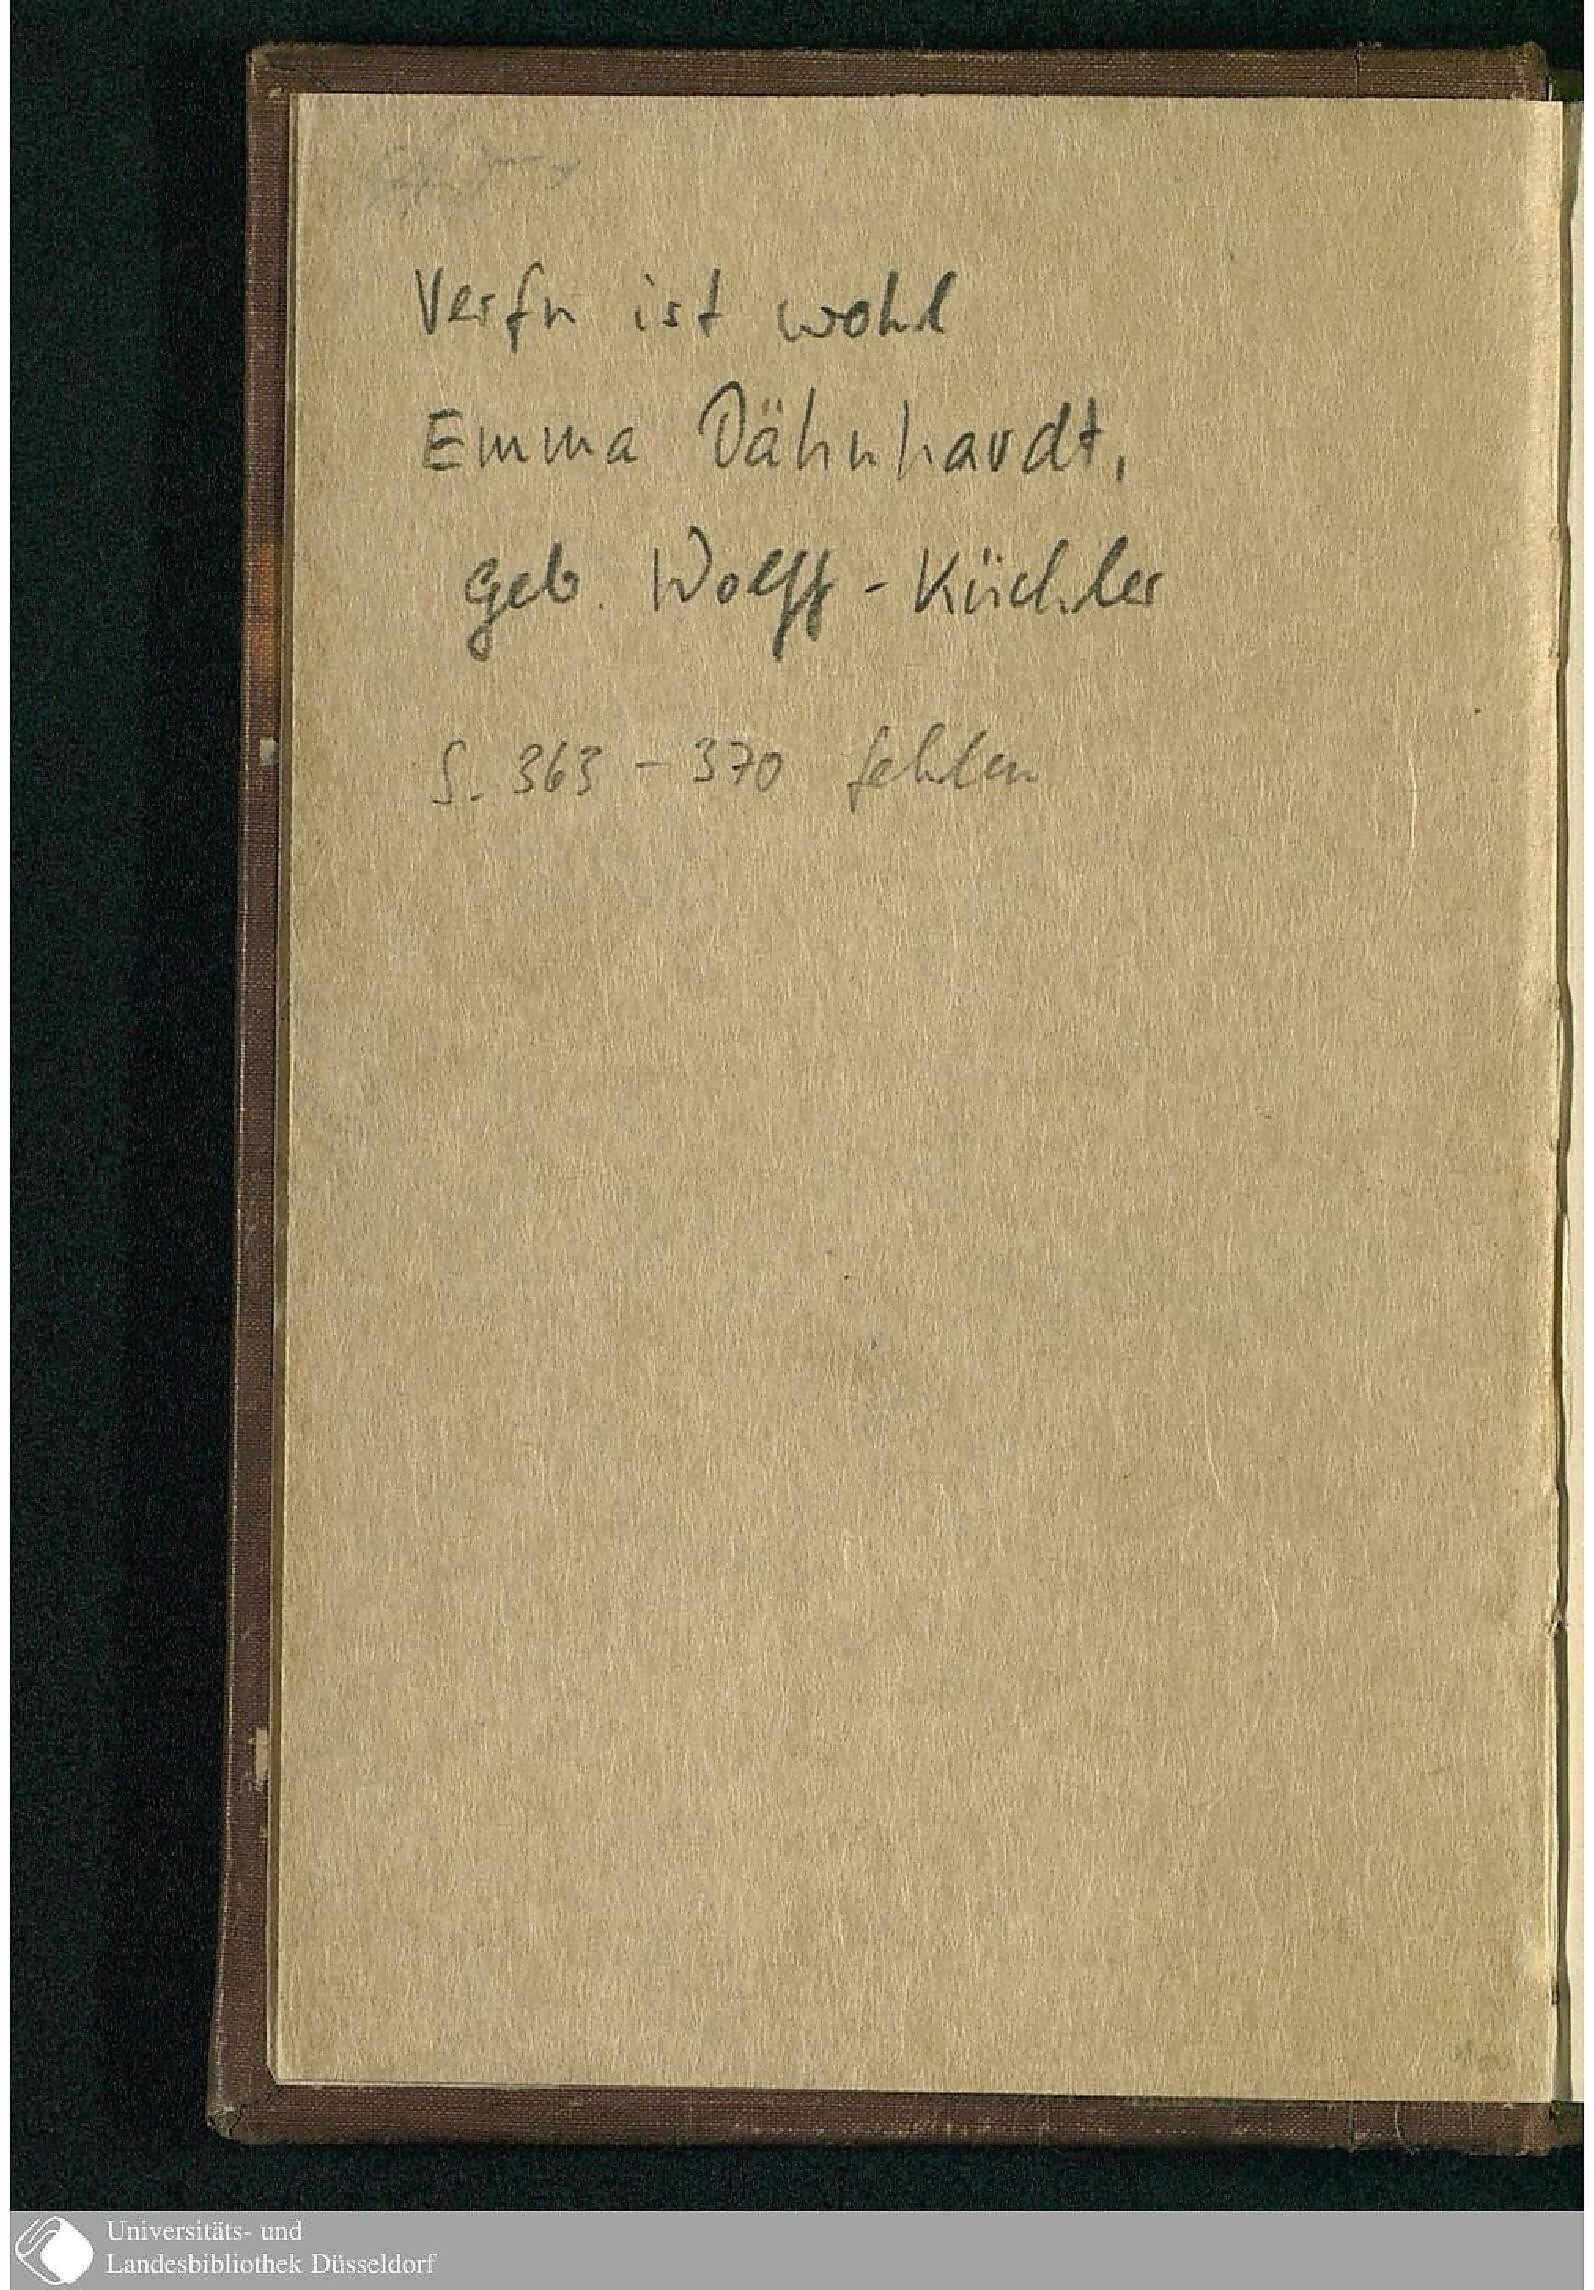 Verfn ist wohl
Emma Dähnhardt,
geb. Wolff-Küchler
S. 363-370 fehlen
Universitäts- und
Landesbibliothek Düsseldorf